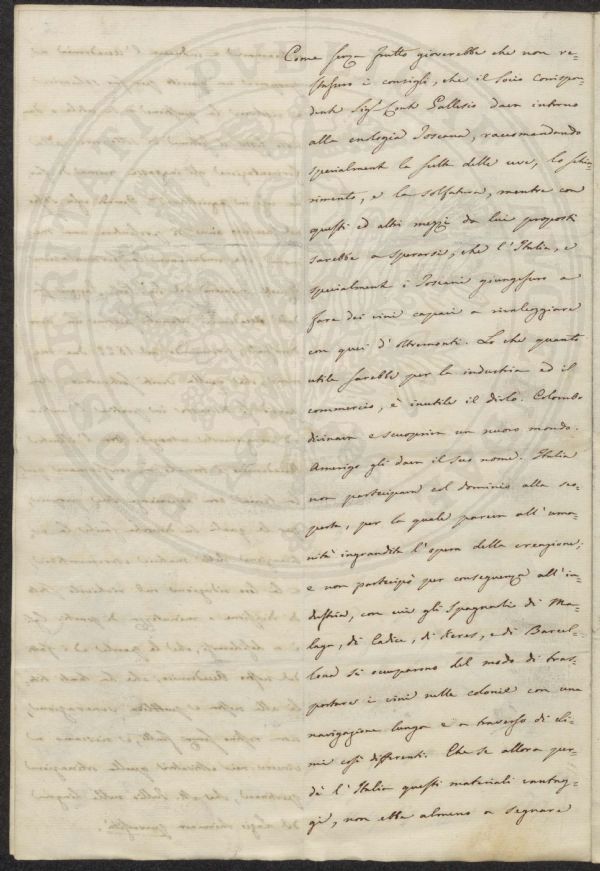 Come senza frutto gioverebbe che non re-
stassero i consigli, che il Socio Corrispon-
dente Sig.r Conte Gallesio dava intorno
alla enologia Toscana, raccomandando
specialmente la scelta delle uve, lo schia-
rimento, e la solfatura, mentre con
questi ed altri mezzi da lui proposti
sarebbe a sperarsi, che l'Italia, e
specialmente i Toscani giungessero a
fare dei vini capaci a rivaleggiare
con quei d'oltremonti. Lo che quanto
utile sarebbe per la industria ed il
commercio, è inutile il dirlo. Colombo
divinava e scuopriva un nuovo mondo.
Amerigo gli dava il suo nome. Italia
non partecipava col dominio alla sco-
perta, per la quale pareva all'uma-
nità ingrandita l'opera della creazione;
e non partecipò per conseguenza all'in-
dustria, con cui gli Spagnoli di Ma-
laga, di Cadice, di Xeres, e di Barcel-
lona si occuparono del modo di tras-
portare i vini nelle colonie con una
navigazione lunga e a traverso di cli-
mi così differenti. Che se allora per-
dè l'Italia questi materiali vantag-
gi, non ebbe almeno a segnare
PROSPERITATI PVBLICAE